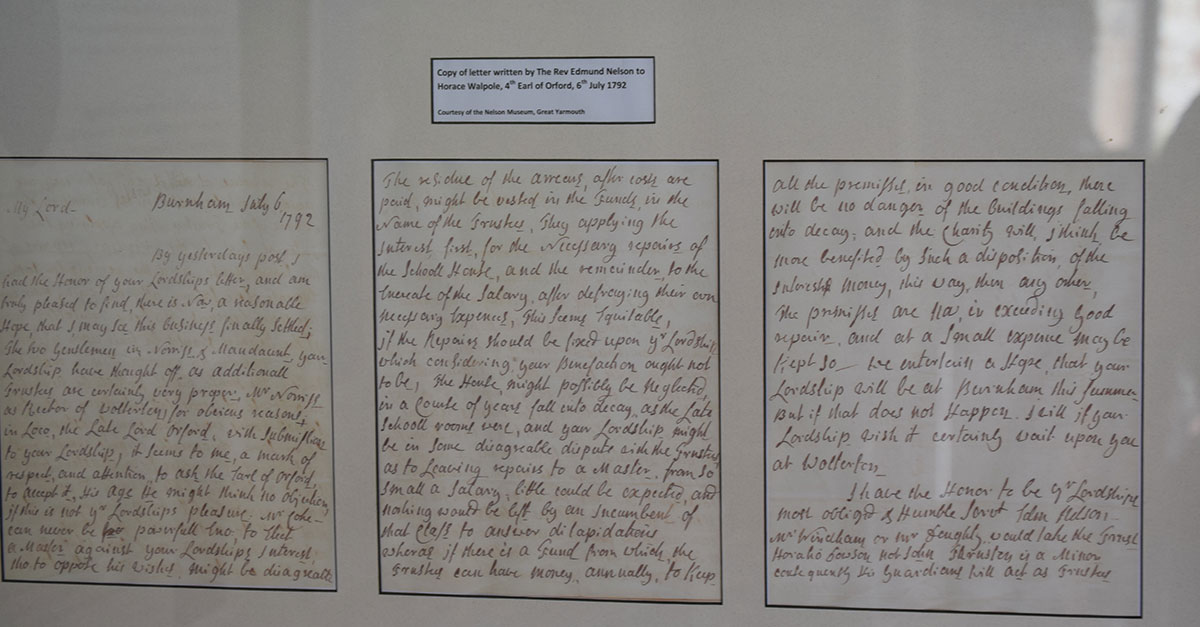 Copy of letter written by The Rev Edmund Nelson to
Horace Walpole, 4th Earl of Orford, 6th July 1792
Courtesy of the Nelson Museum, Great Yarmouth
Burnham July 6
My Lord- 1792
By yesterdays post, I
had the Honor of your Lordships letter, and am
truly pleased to find, there is Now, a reasonable
Hope that I may see this business finally settled;
The two Gentlemen in Norriss & Mandaunt, your
Lordship have thought off as additionall
Trustees are certainly very proper, Mr Norriss
as Rector of Wolterton, for obvious reasons,
in Loco, the Late Lord Orford, with Submission
to your Lordship, it seems to me, a mark of
respect, and attention, to ask the Earl of Orford,
to accept it, His age He might think no objection
if this is not yr Lordships pleasure. Mr Coke
can never be powerfull Eno. to Elect
a Master against your Lordships Interest,
tho to oppose his wishes, might be disagreable
The residue of the arrears, after costs are
paid, might be vested in the Funds, in the
Name of the Trustees, They applying the
Interest first, for the Necessary repairs of
the Schooll House, and the remainder to the
Increase of the Salary, after defraying their own
necessary Expences, This seems Equitable,
if the Repairs should be fixed upon yr Lordship
which considering your Benefaction ought not
to be, The House, might possibly be Neglected,
in a Course of years fall into decay, as the Late
Schooll rooms were, and your Lordship might
be in some disagreable dispute with the Trustees
as to Leaving repairs to a Master, from so
small a Salary, little could be expected, and
nothing would be left by an Incumbent of
that Class to answer dilapidations
wheras if there is a Fund from which, the
Trustees can have money, annually, to keep
all the premisses, in good condition, there
will be no danger of the Buildings falling
into decay, and the Charity will, I think, be
more benefited by such a disposition, of the
Interest money, this way, then any other,
The premisses are Now, in exceeding Good
repair, and at a small expence may be
kept so_ we entertain a Hope, that your
Lordship will be at Burnham this Summer
But if that does not Happen I will if your
Lordship wish it certainly wait upon you
at Wolterton_
I have the Honor to be yr Lordships
most obligd & Humble Servt Edm Nelson-
Mr Windham or Mr Doughty would take the Trust
Horatio not John Thruston is a Minor
consequently His Guardians will act as Trustees